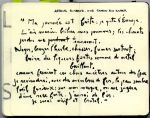 ARTHUR RIMBAUD, UNE SAISON EN ENFER
" Ma journée est faite, je quitte l'Europe.
L'air marin brûlera mes poumons, les climats
perdus me tanneront.
Nager, broyer l'herbe, chasser, fumer surtout,
boire des liqueurs fortes comme du métal
bouillant,
comme faisaient ces chers ancêtres autour des feux
Je reviendrai, avec des membres de fer, la peau sombre
l'œil furieux
j'aurai de l'or
je serai oisif et brutal.